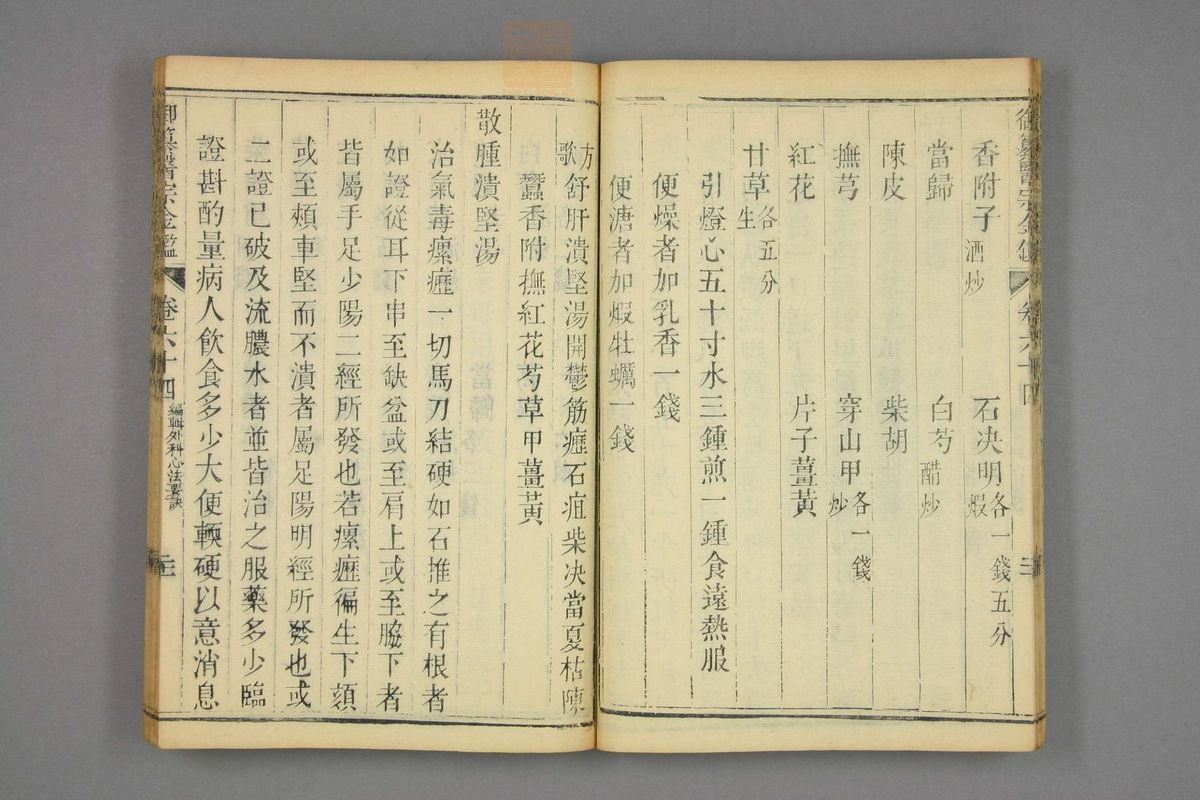 御纂醫宗金鑑 卷六十四
香附子酒炒 石决明煆各一錢五分
當歸 白芍醋炒
陳皮 柴胡
撫芎 穿山甲炒各一錢
紅花 片子薑黃
甘草生各五分
引燈心五十寸水三鍾煎一鍾食遠熱服
便燥者加乳香一錢
便溏者加煆牡蠣一錢
方歌舒肝潰堅湯開鬱筋癧石疽柴决當夏枯陳
白蠶香附撫紅花芍草甲薑黃
散腫潰堅湯
治氣毒瘰癧一切馬刀結硬如石推之有根者
如證從耳下串至缺盆或至肩上或至脇下者
皆屬手足少陽二經所發也若瘰癧徧生下頦
或至頰車堅而不潰者屬足陽明經所發也或
二證已破及流膿水者並皆治之服藥多少臨
證斟酌量病人飲食多少大便輭硬以意消息
御纂醫宗金鑑 卷六十四 編輯外科心法要訣